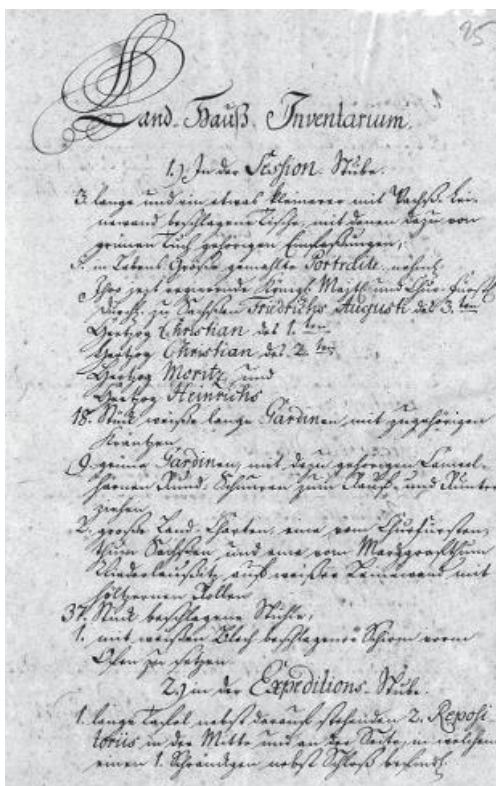 25
Land-Hauß Inventarium.
1.) In der Session-Stube.
3. lange und ein etwas kleinerer mit Wachß-Lei-
newand beschlagene Tische, mit denen dazu von
grünen Tuch gehörigen Einfaßungen,
5. in Lebens Größe gemahlte Portraite, nehml.
Ihro jezt regierende Königl. Majtt. und Chur-Fürstl.
Durchl. zu Sachßen Friedrichs Augusti des 3.ten
Hertzog Christian des 1.ten
Hertzog Christian des 2.ten
Hertzog Moritz, und
Hertzog Heinrichs
18. Stück weiße lange Gardinen, mit zugehörigen
Kräntzen
9. grüne Gardinen, mit dazu gehörigen Cameel-
härnen Rund-Schnuren zum Nauf- und Runter
ziehen
2. große Land-Charten, eine vom Churfürsten-
thum Sachßen und eine vom Marggrafthum
Niederlaußitz, auf weißer Leinewand mit
höltzernen Rollen
37. Stück beschlagene Stühle,
1. mit weißen Blech beschlagener Schirm vorm
Ofen zu setzen
2.) in der Expeditions-Stube.
1. lange Tafel nebst darauf stehenden 2. Reposi
toriis in der Mitte und an der Seite, in welchem
einen 1. nebst Schloß befindl.